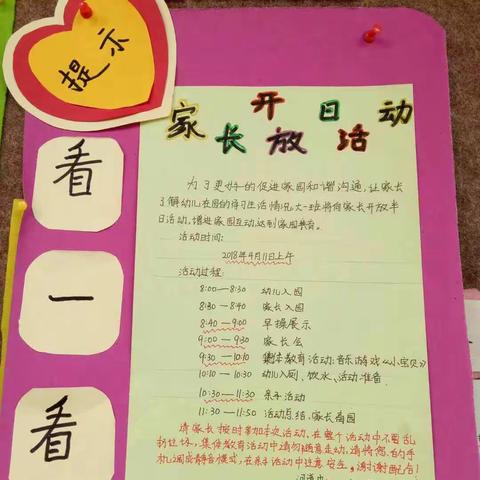 提示
看
一
看
家长开放日活动
为了更好的促进家园和谐沟通,让家长
了解幼儿在园的学习生活情况,大一班将向家长开放半
日活动,增进家园互动,达到家园共育。
活动时间:
2018年4月11日上午
活动过程:
8:00—8:30 幼儿入园
8:30—8:40 家长入园
8:40—9:00 早操展示
9:00—9:30 家长会
9:30—10:10 集体教育活动:音乐游戏《小宝贝》
10:10—10:30 幼儿入厕、饮水、活动准备
10:30—11:30 亲子活动
11:30—11:50 活动总结,家长离园
请家长按时参加本次活动,在整个活动中不要乱
扔垃圾,集体教育活动中请勿随意走动,请将您的手
机调成静音模式,在亲子活动中注意安全。谢谢配合!